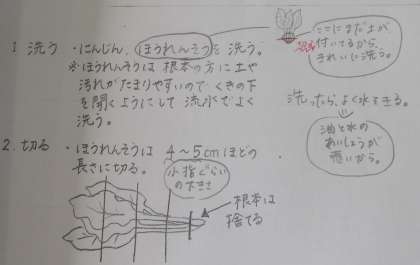 1 洗う ・にんじん、ほうれんそうを洗う。
※ほうれんそうは根本の方に土や
汚れがたまりやすいので くきの下
を開くようにして 流水でよく
洗う。
ここにまだ土が
付いてるから、
きれいに洗う。
洗ったら、よく水をきる。
油と水の
あいしょうが
悪いから。
2.切る ・ほうれんそうは 4〜5cmほどの
長さに切る。
小指ぐらい
の大きさ
根本は
捨てる